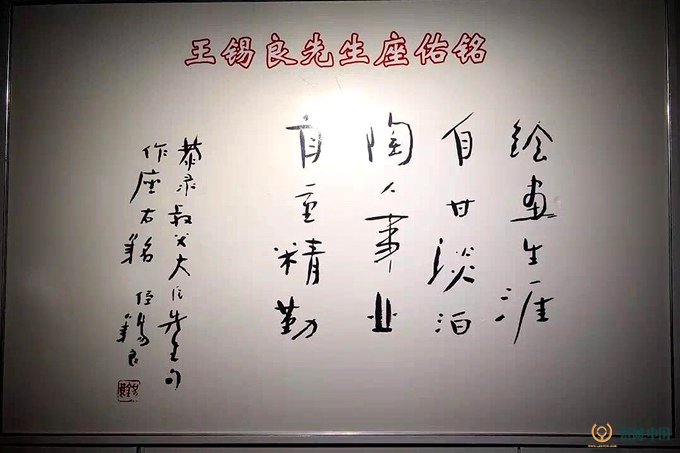 王锡良先生座佑铭
绘画生涯
自甘淡泊
陶人事业
首重精勤
恭录叔父大凡先生句
作座右铭 侄锡良